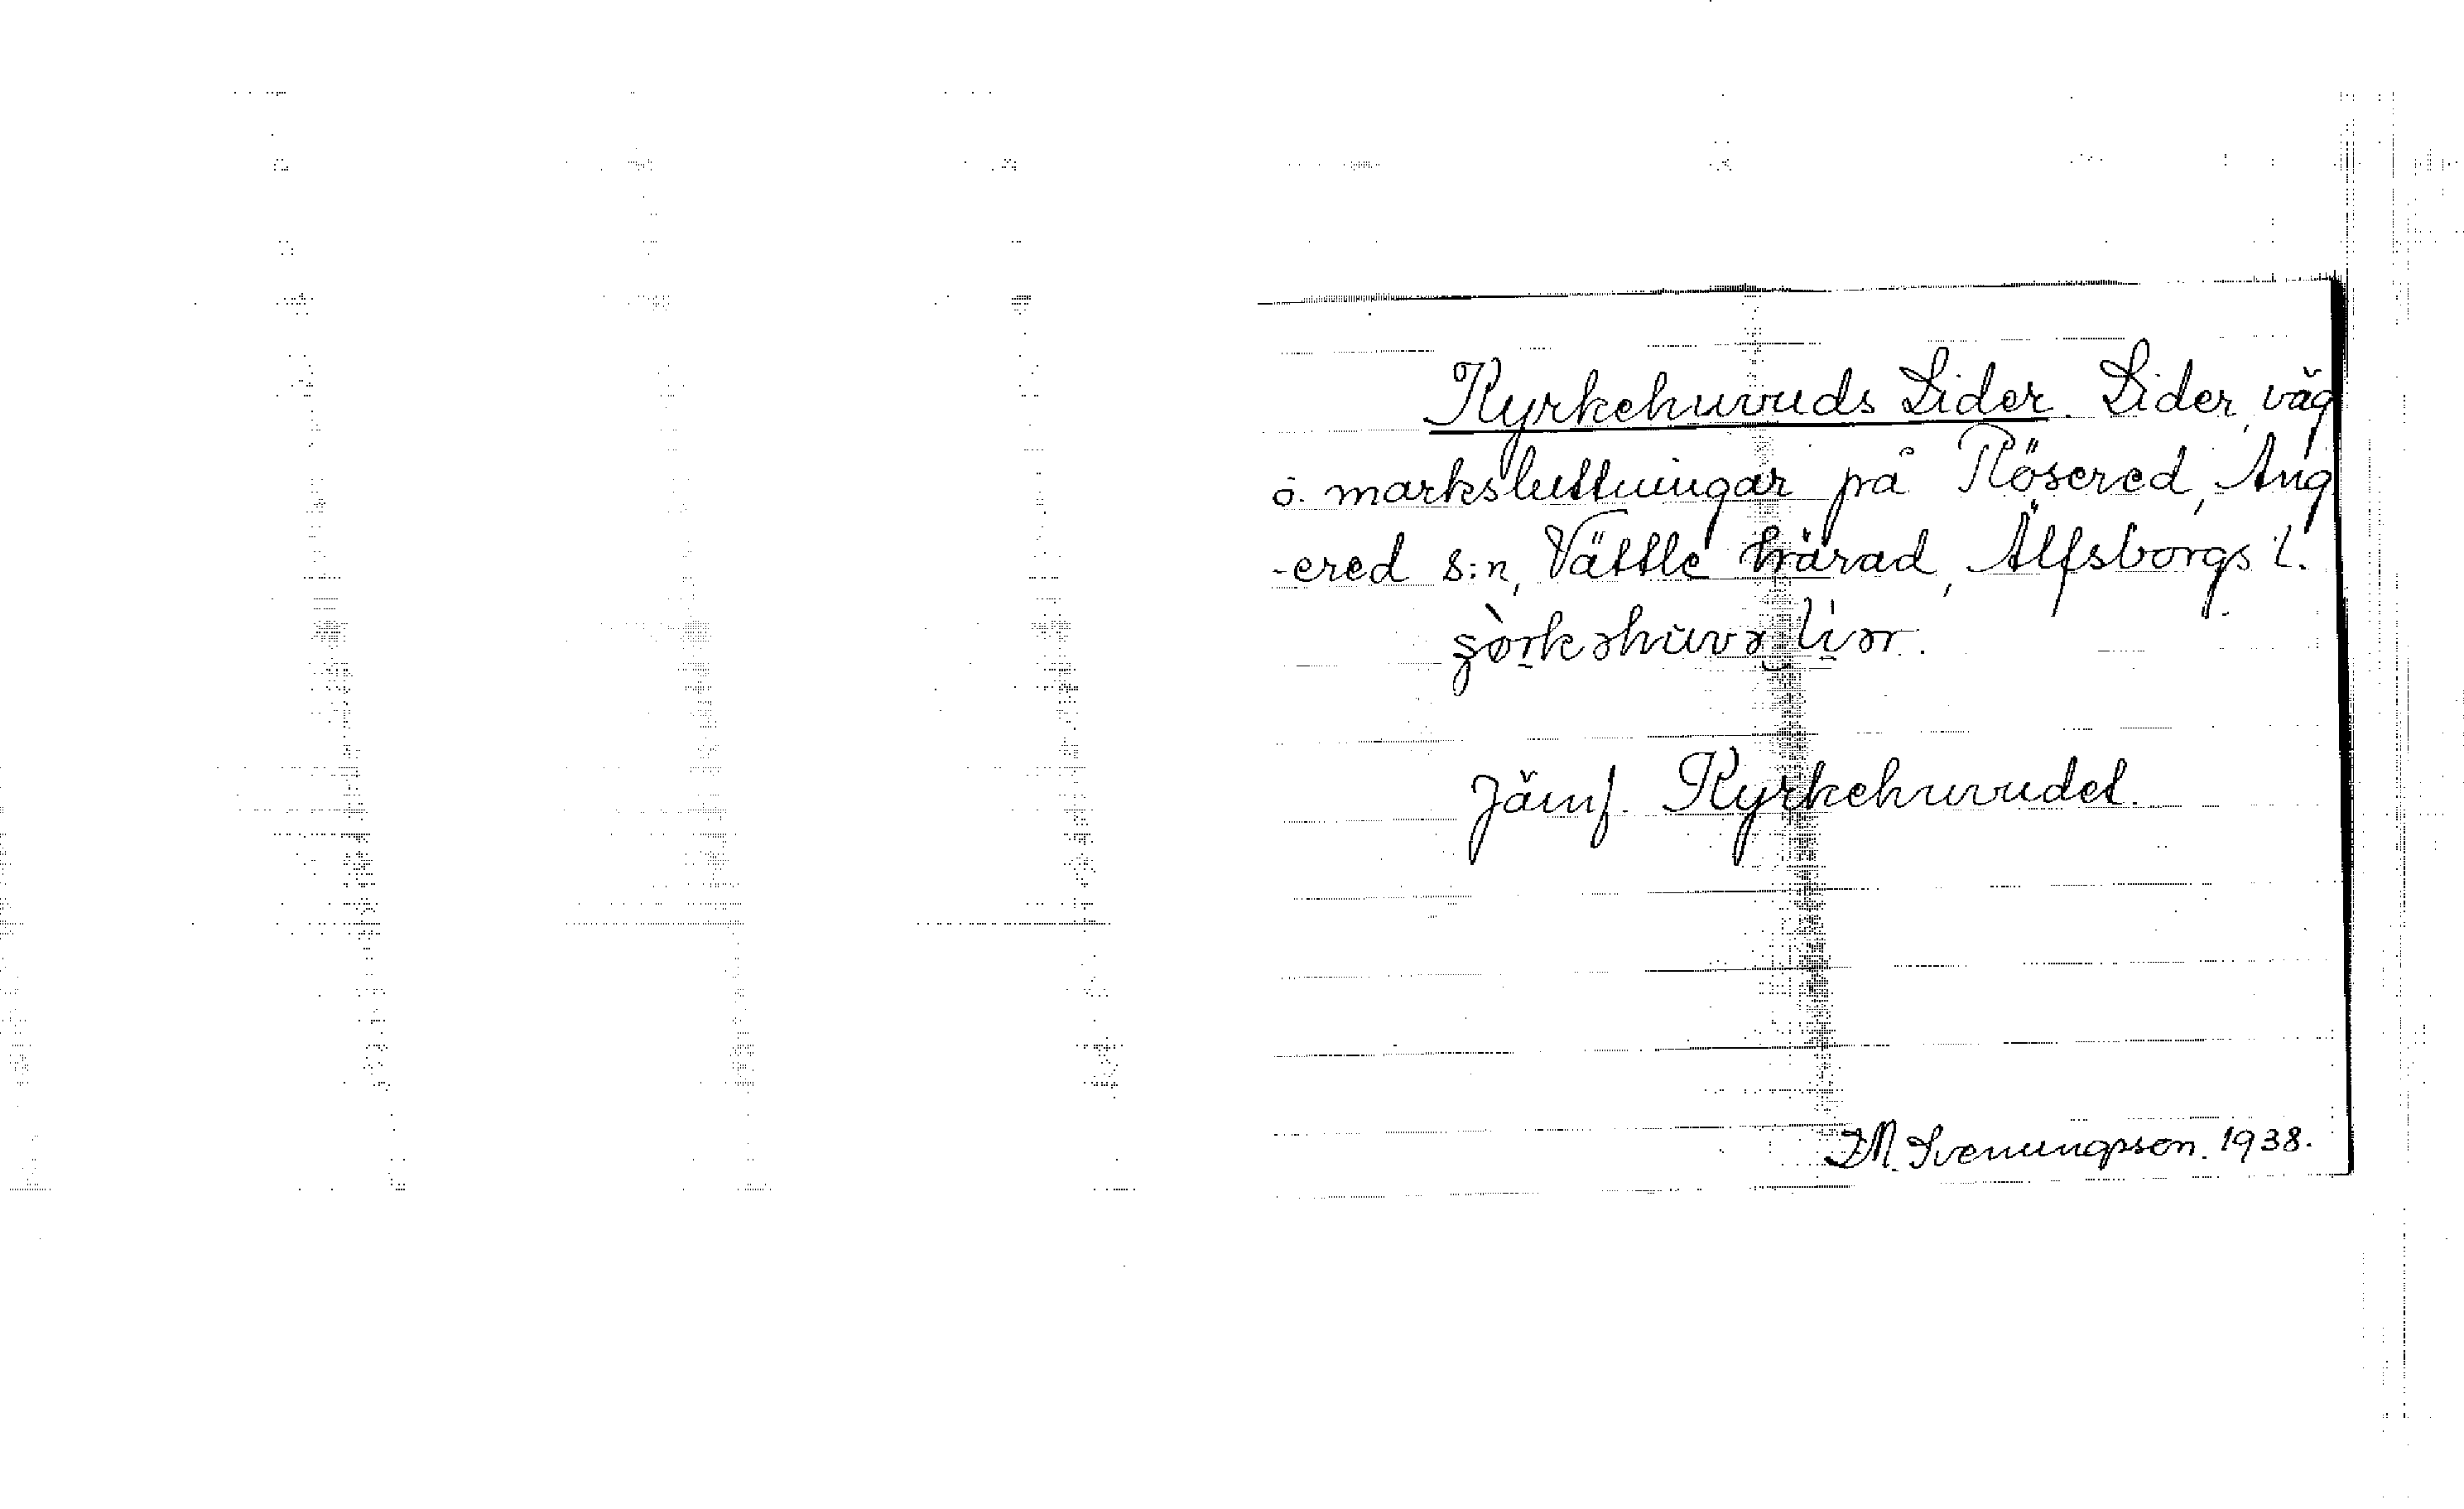 Kyrkehuvuds Lider. Lider, väg
o. marksluttningar på Rösered, Ang
-ered s:n, Vättle härad, Älfsborgs l.
Jämf. Kyrkehuvudet.
J.M. Svenungsson. 1938.